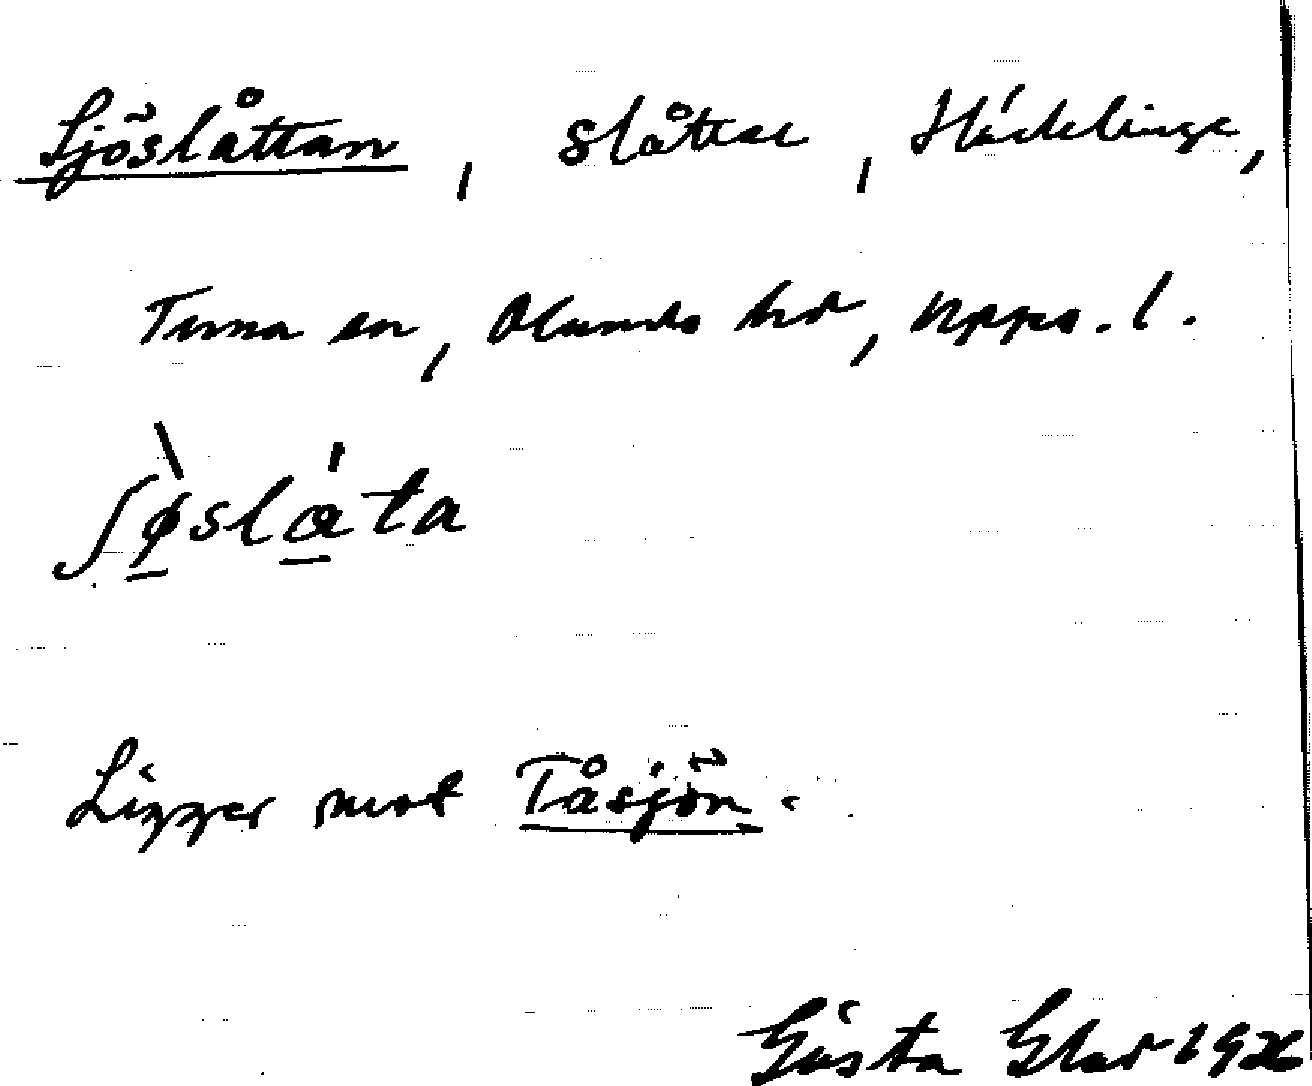 Sjöslåttan, slåtter, Häcklinge,
Tuna sn, Olands hd, Upps. l.
ʃø̀slɑ́ta
Ligger mot Tåsjön.
Gösta Glad 19